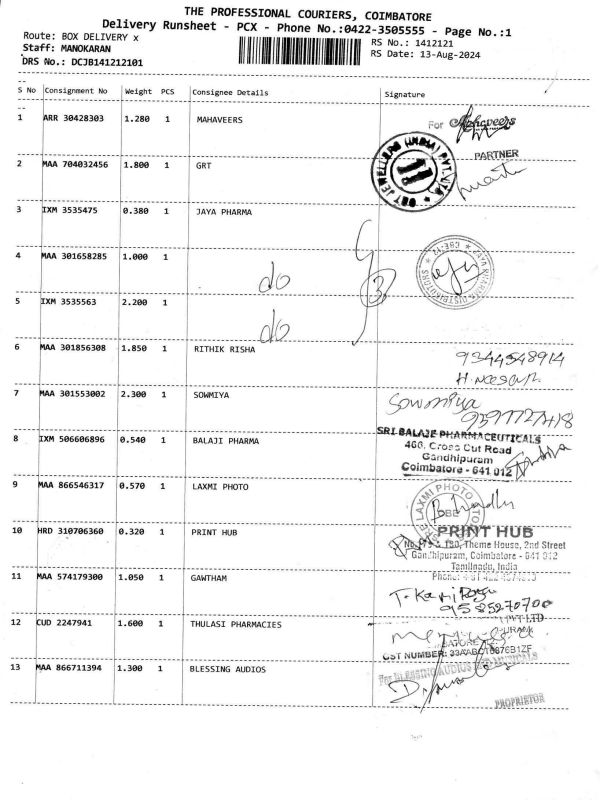 THE PROFESSIONAL COURIERS, COIMBATORE
Delivery Runsheet - PCX - Phone No.:0422-3505555 - Page No.:1
Route: BOX DELIVERY x
Staff: MANOKARAN
DRS No.: DCJB141212101
RS No.: 1412121
RS Date: 13-Aug-2024
S No Consignment No Weight PCS Consignee Details Signature
1 ARR 30428303 1.280 1 MAHAVEERS
For Mahaveers
PARTNER
2 MAA 704032456 1.800 1 GRT
JEWELLERS (INDIA) PVT. LTD
3 IXM 3535475 0.380 1 JAYA PHARMA
4 MAA 301658285 1.000 1 do 3
5 IXM 3535563 2.200 1 do
6 MAA 301856308 1.850 1 RITHIK RISHA
9344548914
7 MAA 301553002 2.300 1 SOWMIYA
Sowmiya
8 IXM 506606896 0.540 1 BALAJI PHARMA
SRI BALAJE PHARMACEUTICALS
466, Cross Cut Road
Gandhipuram
Coimbatore - 641 012
9 MAA 866546317 0.570 1 LAXMI PHOTO
LAXMI PHOTO
10 HRD 310706360 0.320 1 PRINT HUB
PRINT HUB
Theme House, 2nd Street
Gandhipuram, Coimbatore - 641 012
Tamilnadu, India
Phone:
11 MAA 574179300 1.050 1 GAWTHAM
9585270700
12 CUD 2247941 1.600 1 THULASI PHARMACIES
PVT LTD
GST NUMBER:
13 MAA 866711394 1.300 1 BLESSING AUDIOS
For BLESSING AUDIOS
PROPRIETOR